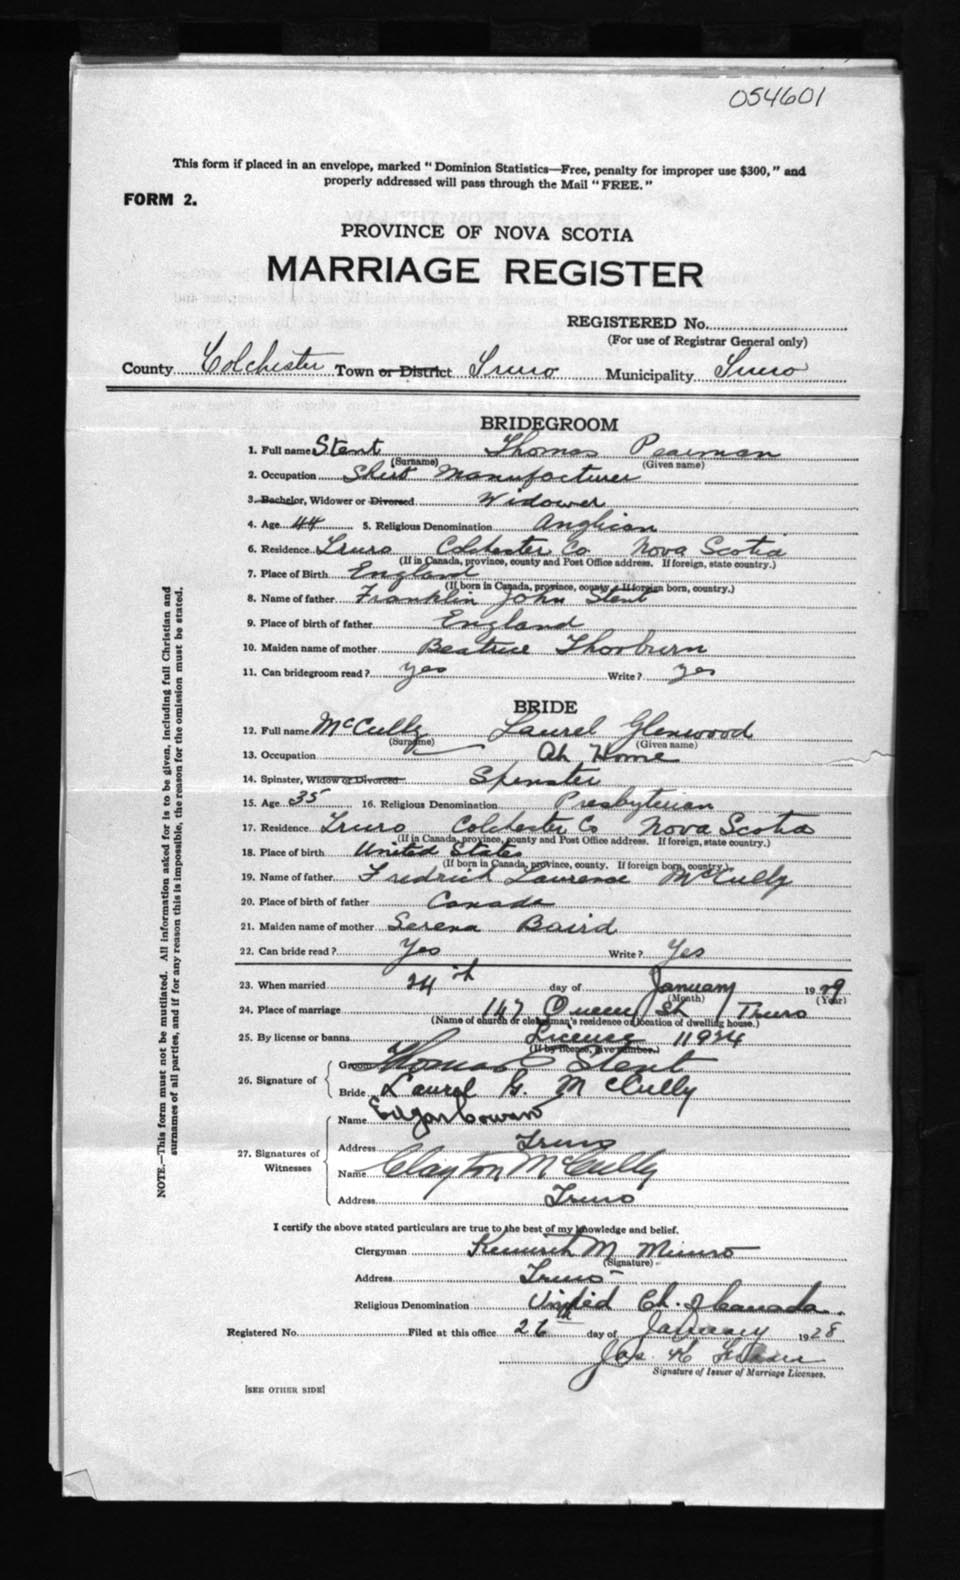 054601
This form if placed in an envelope, marked "Dominion Statistics—Free, penalty for improper use $300," and
properly addressed will pass through the Mail "FREE."
FORM 2.
PROVINCE OF NOVA SCOTIA
MARRIAGE REGISTER
REGISTERED No.
(For use of Registrar General only)
County Colchester Town or District Truro Municipality Truro
BRIDEGROOM
1. Full name Stent Thomas Pearman
(Surname) (Given name)
2. Occupation Shirt Manufacturer
3. Bachelor, Widower or Divorced Widower
4. Age 44 5. Religious Denomination Anglican
6. Residence Truro Colchester Co Nova Scotia
(If in Canada, province, county and Post Office address. If foreign, state country.)
7. Place of Birth England
(If born in Canada, province, county. If foreign born, country.)
8. Name of father Franklin John Stent
9. Place of birth of father England
10. Maiden name of mother Beatrice Thorburn
11. Can bridegroom read? yes Write? yes
BRIDE
12. Full name McCully Laurel Glenwood
(Surname) (Given name)
13. Occupation At Home
14. Spinster, Widow or Divorced Spinster
15. Age 35 16. Religious Denomination Presbyterian
17. Residence Truro Colchester Co Nova Scotia
(If in Canada, province, county and Post Office address. If foreign, state country.)
18. Place of birth United States
(If born in Canada, province, county. If foreign born, country.)
19. Name of father Fredrick Laurence McCully
20. Place of birth of father Canada
21. Maiden name of mother Serena Baird
22. Can bride read? Yes Write? Yes
23. When married 24th day of January 1929
(Month) (Year)
24. Place of marriage 147 Queen St Truro
(Name of church or clergyman's residence or location of dwelling house.)
25. By license or banns License 11924
(If by license, give number.)
26. Signature of Groom Thomas Stent
Bride Laurel G. McCully
27. Signatures of Witnesses
Name Edgar Cowan
Address Truro
Name Clayton McCully
Address Truro
I certify the above stated particulars are true to the best of my knowledge and belief.
Clergyman Kenneth M Munro
(Signature)
Address Truro
Religious Denomination United Ch. of Canada.
Registered No. Filed at this office 26th day of January 1928
Jas. K
Signature of Issuer of Marriage Licenses.
[SEE OTHER SIDE]
NOTE.—This form must not be mutilated. All information asked for is to be given, including full Christian and
surnames of all parties, and if for any reason this is impossible, the reason for the omission must be stated.